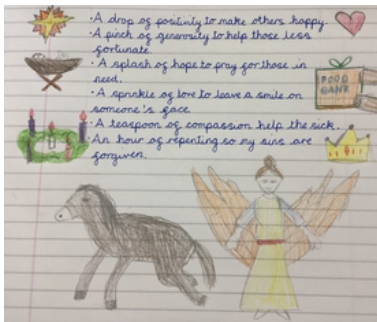 ·A drop of positivity to make others happy.
·A pinch of generosity to help those less
fortunate.
·A splash of hope to pray for those in
need.
·A sprinkle of love to leave a smile on
someone's face
·A teaspoon of compassion help the sick.
·An hour of repenting so my sins are
forgiven.
FOOD
BANK